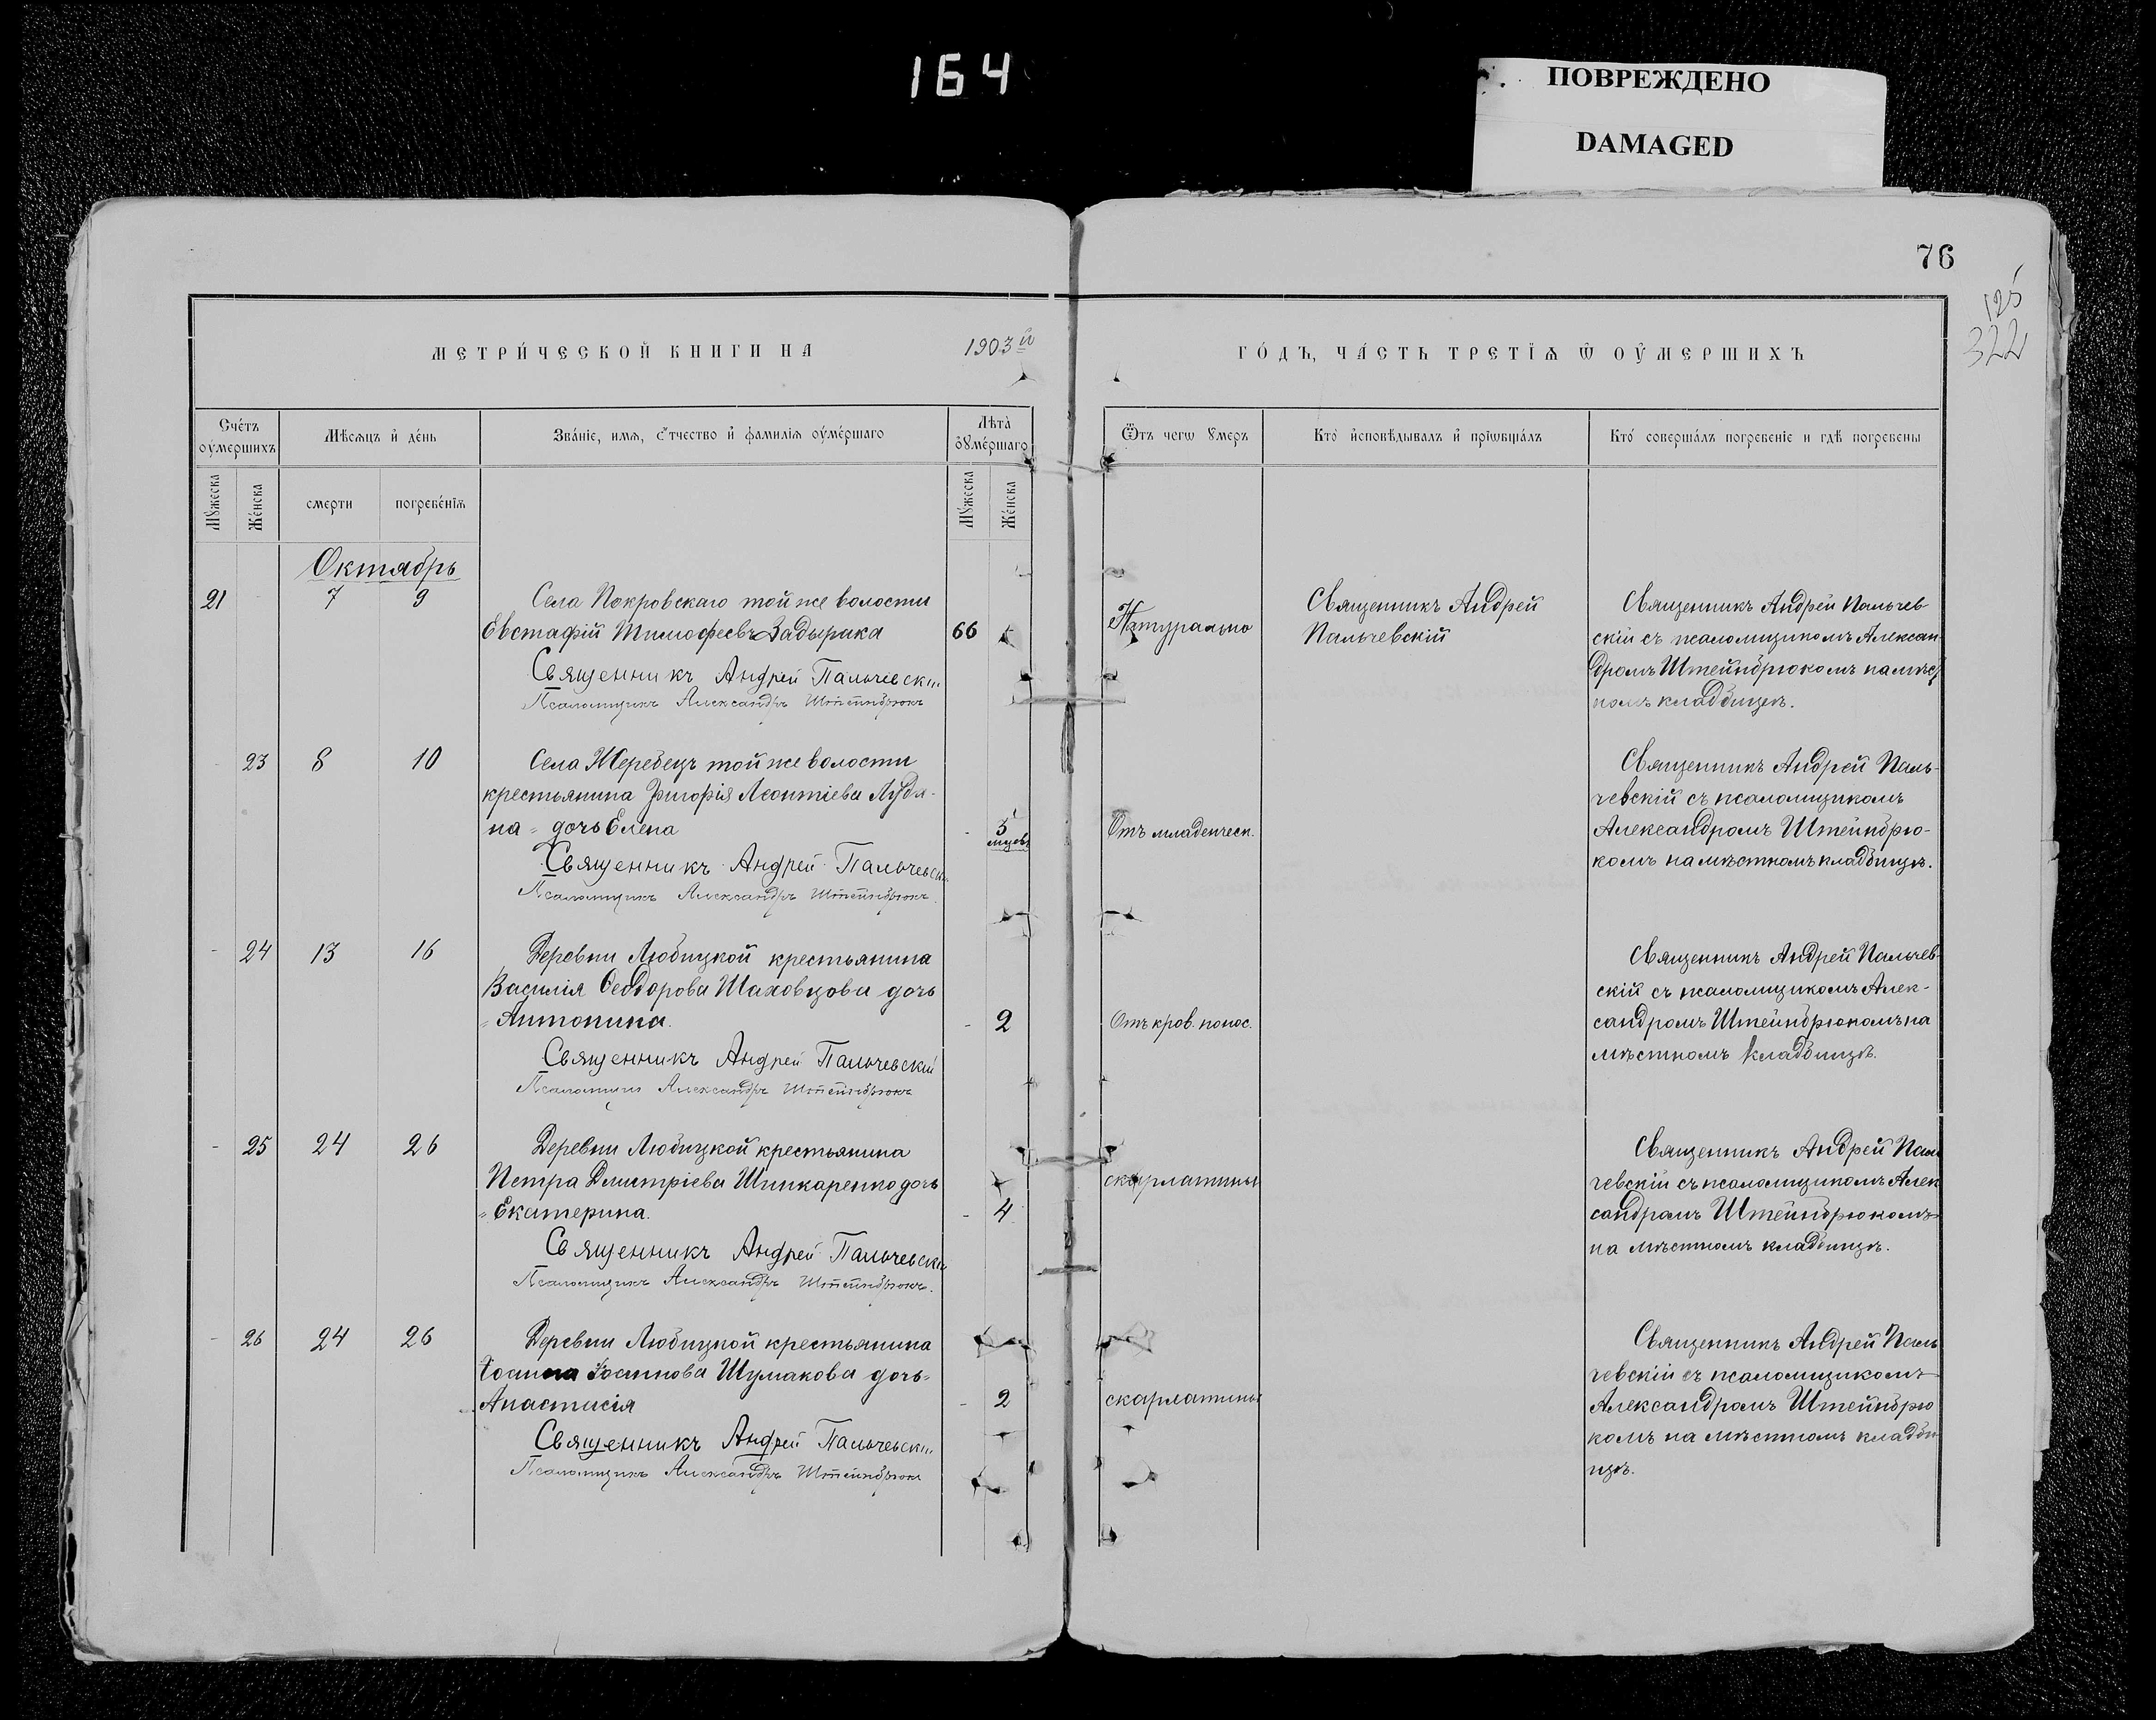 164
ПОВРЕЖДЕНО
DAMAGED
76
125
322
МЕТРИ́ЧЕСКОЙ КНИГИ НА 1903й
ГО́ДЪ, ЧА́СТЬ ТРЕТЇѦ Ѿ ОУ҆МЕРШИХЪ
Сче́тъ оу҆ме́ршихъ
Мѣсѧцъ и҆ де́нь
Зва́нїе, имѧ, ѻ҆́тчество и҆ фамилїѧ оу҆ме́ршаго
Лѣта̀ оу҆ме́ршаго
Ѿ́тъ чегѡ ꙋмеръ
Кто̀ и҆сповѣ́дывалъ и҆ прїѡбща́лъ
Кто́ соверша́лъ погребенїе и гдѣ̀ погребены
Мꙋ́жеска
Же́нска
смерти
погребе́нїѧ
Мꙋ́жеска
Же́нска
Октябрь
21 - 7 9 Села Покровскаго той же волости
Евстафій Тимофеевъ Задырака 66
Священникъ Андрей Пальчевскій
Псаломщикъ Александръ Штейнбрюкъ
Натурально
Священникъ Андрей
Пальчевскій
Священникъ Андрей Пальчев-
скій съ псаломщикомъ Алексан-
дромъ Штейнбрюкомъ на мѣст-
номъ кладбищѣ.
- 23 8 10 Села Жеребецъ той же волости
крестьянина Григорія Леонтіева Луди-
на = дочь Елена - 5
мцевъ
Священникъ Андрей Пальчевскій
Псаломщикъ Александръ Штейнбрюкъ.
Отъ младенческ.
Священникъ Андрей Паль-
чевскій съ псаломщикомъ
Александромъ Штейнбрю-
комъ на мѣстномъ кладбищѣ.
- 24 13 16 Деревни Любицкой крестьянина
Василія Феодорова Шаховцова дочь
= Антонина. - 2
Священникъ Андрей Пальчевскій
Псаломщикъ Александръ Штейнбрюкъ
Отъ кров. понос.
Священникъ Андрей Пальчев-
скій съ псаломщикомъ Алек-
сандромъ Штейнбрюкомъ на
мѣстномъ кладбищѣ.
- 25 24 26 Деревни Любицкой крестьянина
Петра Дмитріева Шинкаренко дочь
= Екатерина. - 4
Священникъ Андрей Пальчевскій
Псаломщикъ Александръ Штейнбрюкъ.
скарлатины
Священникъ Андрей Паль
чевскій съ псаломщикомъ Алек
сандромъ Штейнбрюкомъ
на мѣстномъ кладбищѣ.
- 26 24 26 Деревни Любицкой крестьянина
Іоанна Іоаннова Шумакова дочь =
Анастасія - 2
Священникъ Андрей Пальчевскій
Псаломщикъ Александръ Штейнбрюкъ
скарлатины
Священникъ Андрей Паль
чевскій съ псаломщикомъ
Александромъ Штейнбрю
комъ на мѣстномъ кладби
щѣ.